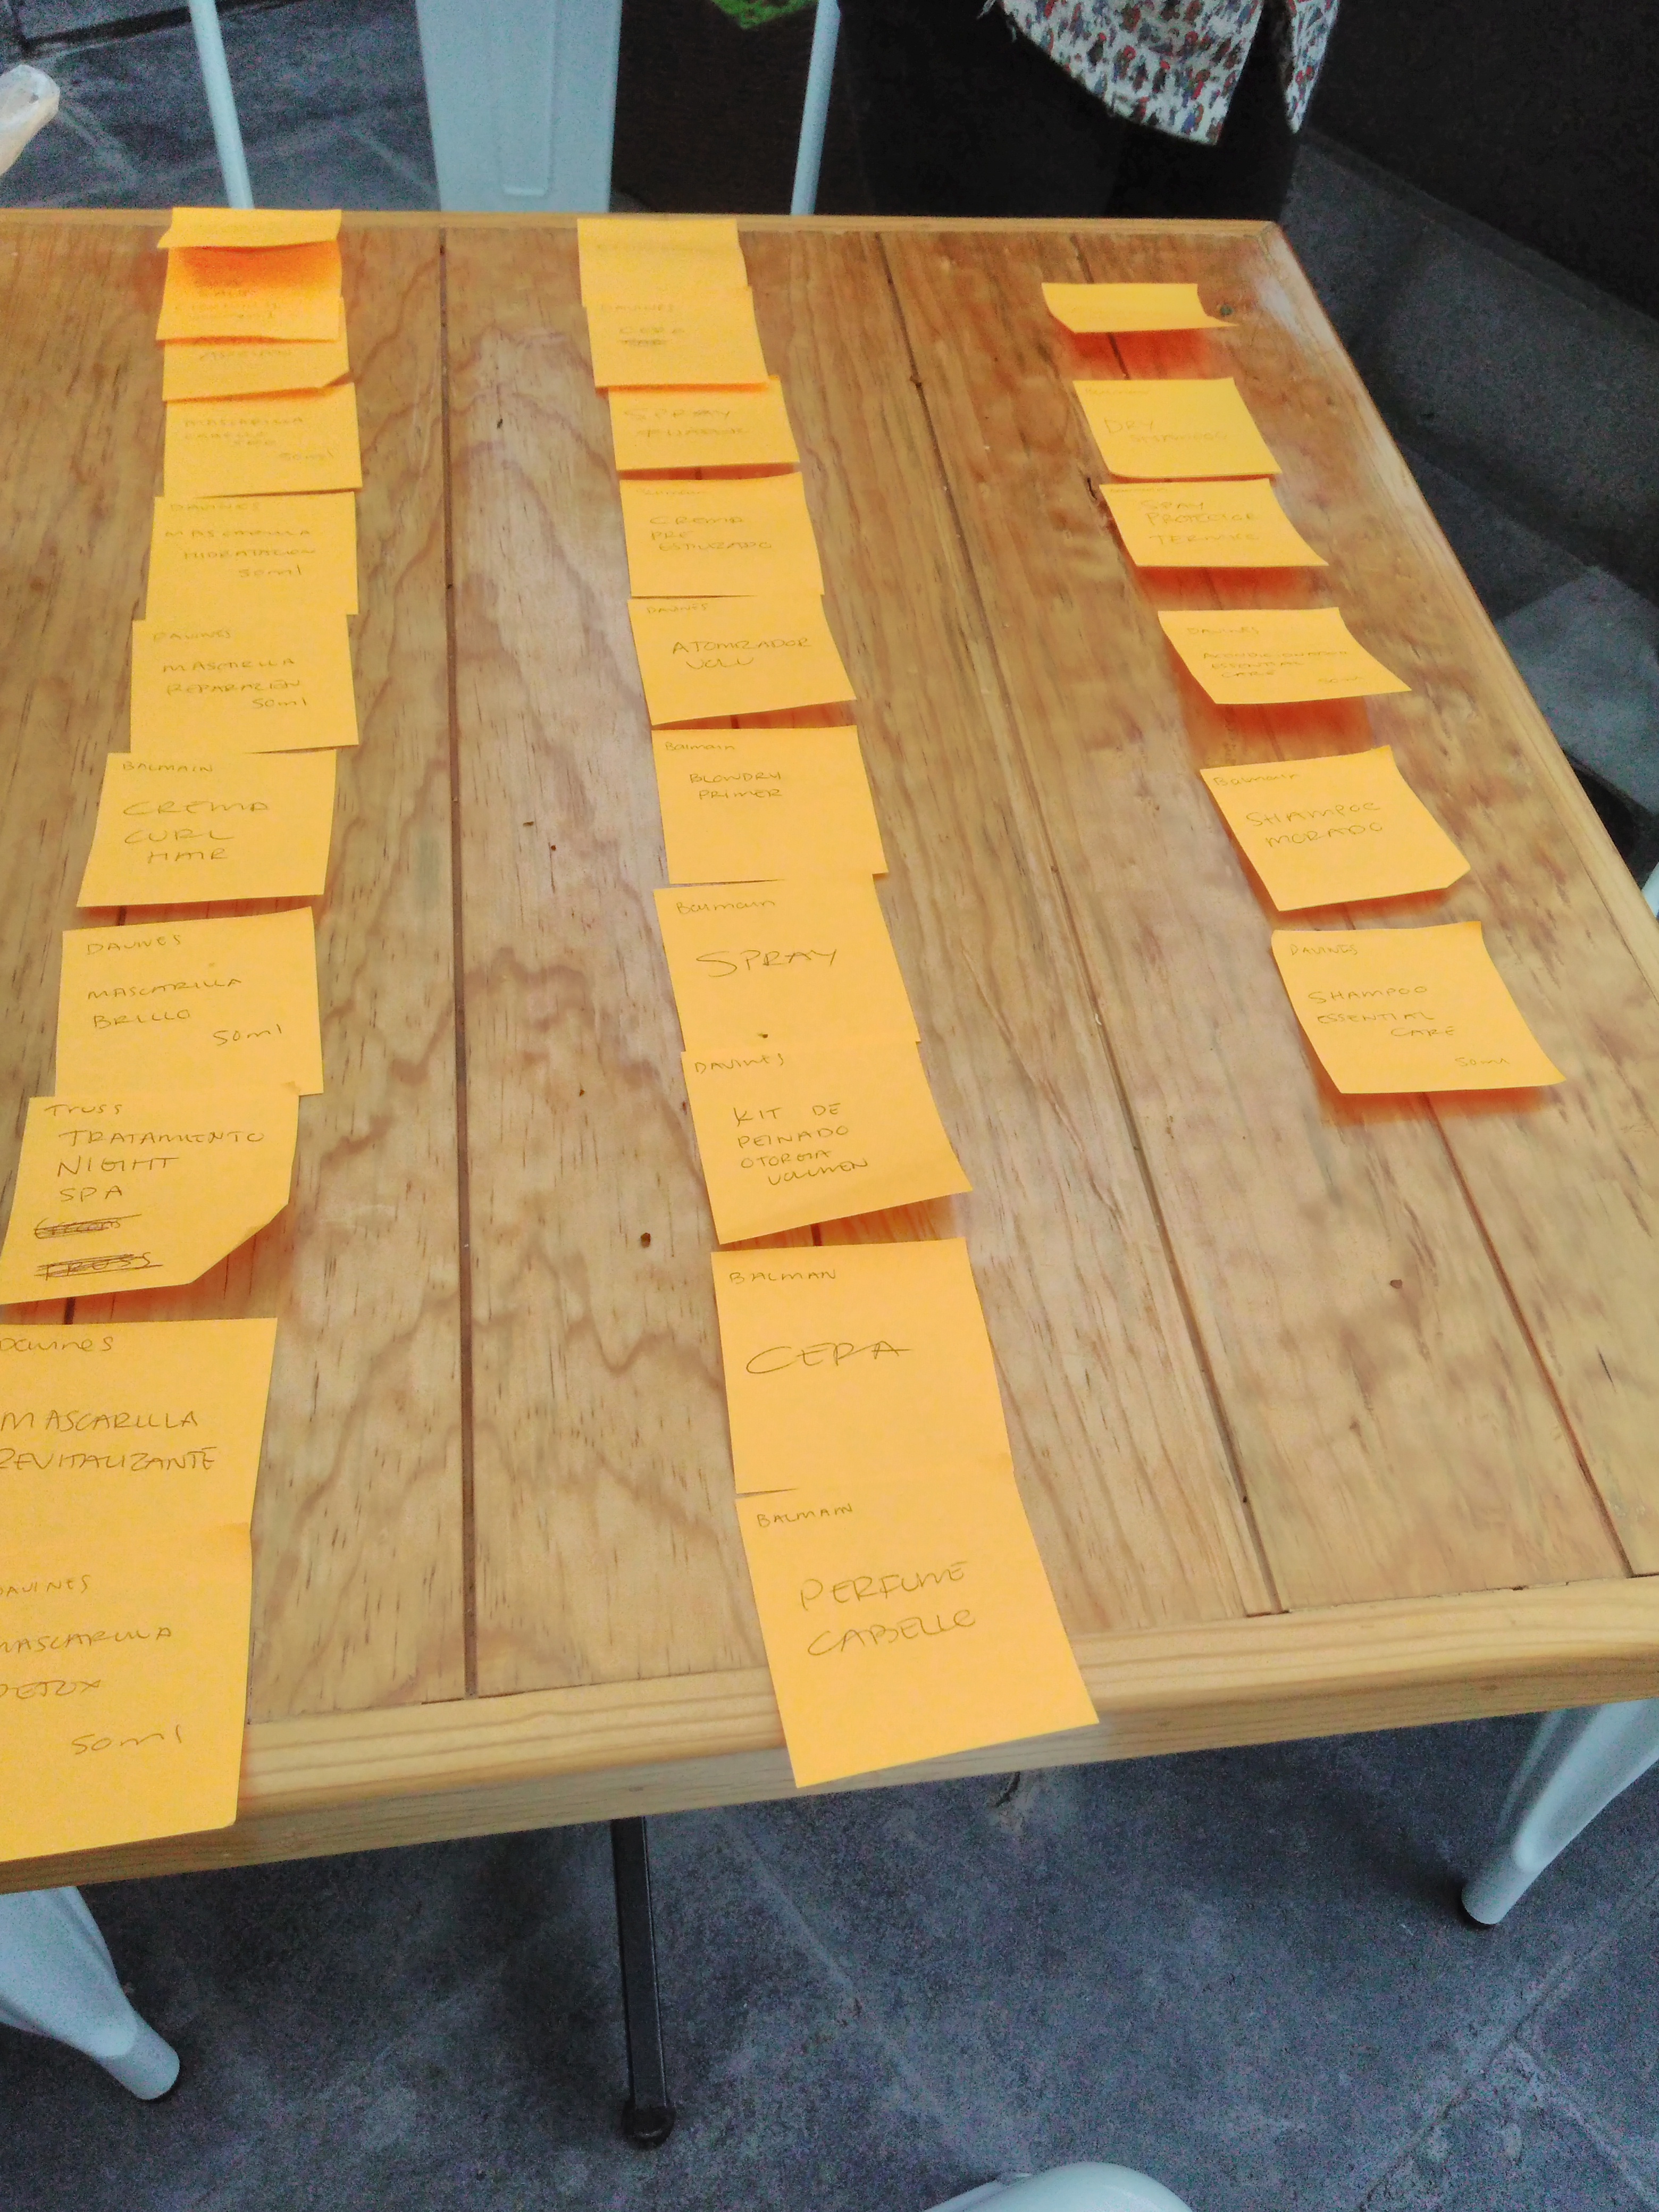 MASCARILLA
CABELLO
50ml
DAVINES
MASCARILLA
HIDRATACION
50ml
DAVINES
MASCARILLA
REPARACIÓN
50ml
BALMAIN
CREMA
CURL
HAIR
DAVINES
MASCARILLA
BRILLO
50ml
Truss
TRATAMIENTO
NIGHT
SPA
Davines
MASCARILLA
REVITALIZANTE
DAVINES
MASCARILLA
DETOX
50ml
DAVINES
CERA
SPRAY
CREMA
PRE
ESTILIZADO
DAVINES
ATOMIZADOR
VOLU
Balmain
BLOWDRY
PRIMER
Balmain
SPRAY
DAVINES
KIT DE
PEINADO
OTORGA
VOLUMEN
BALMAN
CERA
BALMAIN
PERFUME
CABELLO
DRY
SHAMPOO
SPRAY
PROTECTOR
TERMICO
DAVINES
ACONDICIONADOR
ESSENTIAL
CARE
50ml
Balmain
SHAMPOO
MORADO
DAVINES
SHAMPOO
ESSENTIAL
CARE
50ml